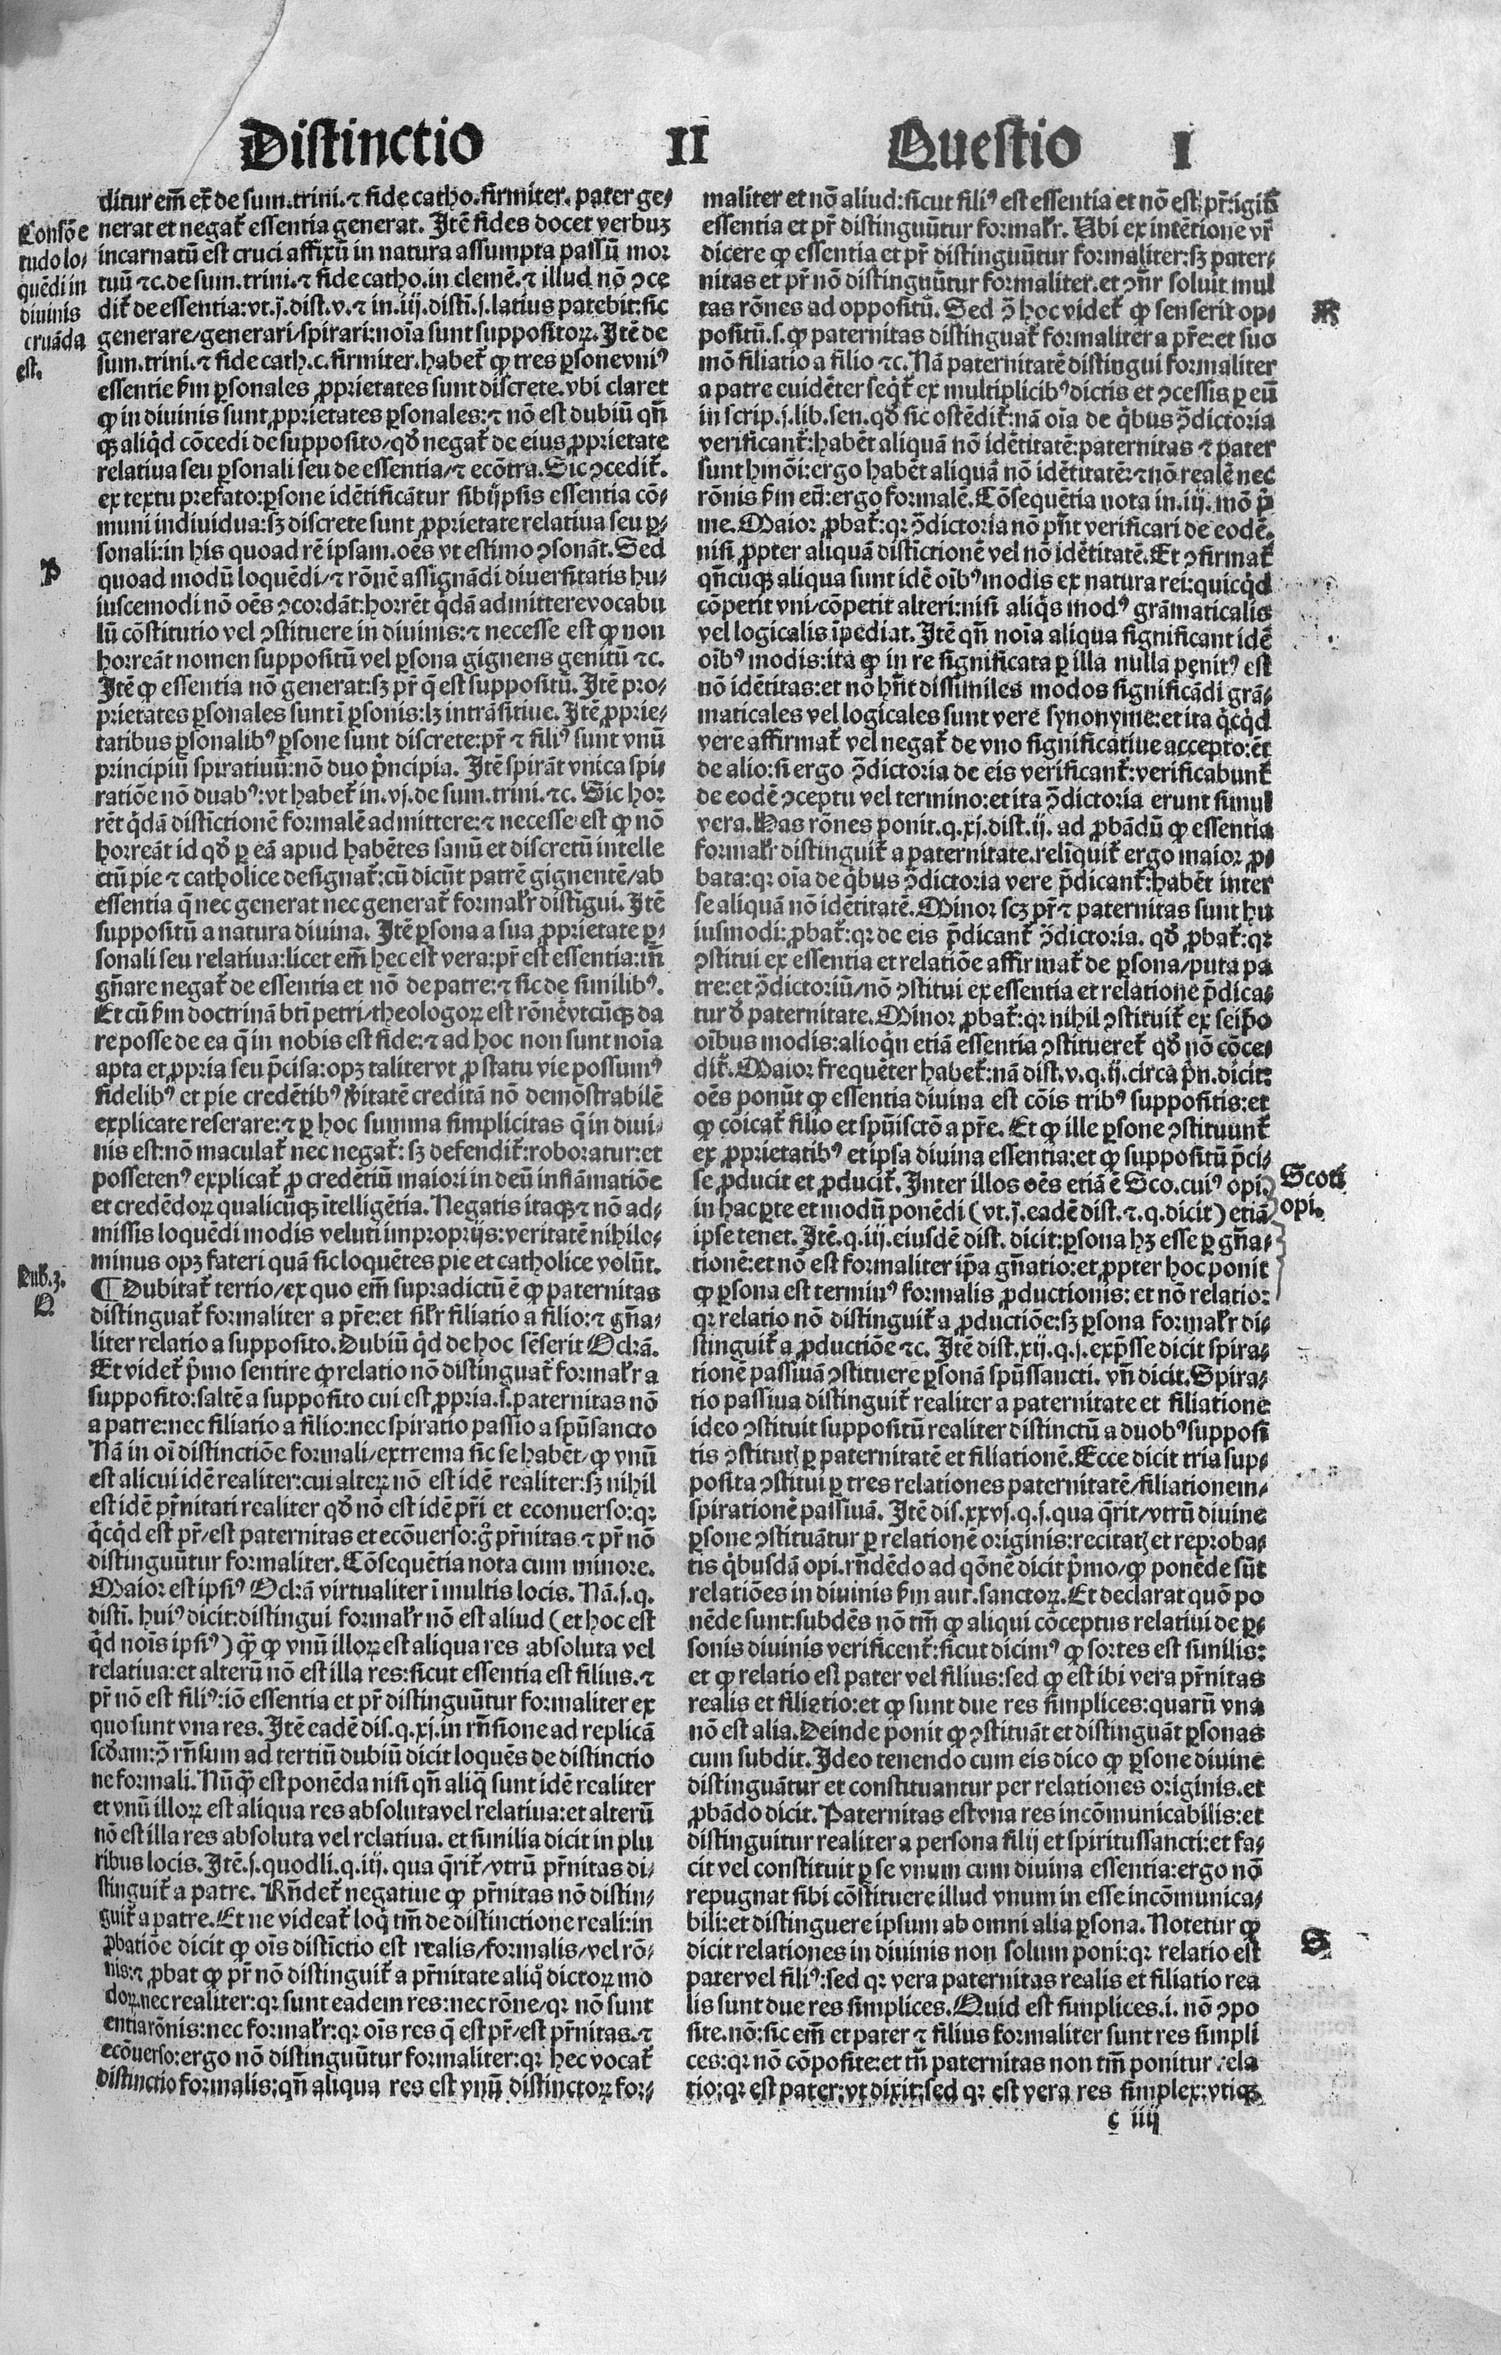 Distinctio II Questio I
ditur em̄ ex̄ de sum̄.trini.⁊ fide catho.firmiter. pater ge⸗
nerat et negat̄ essentia generat. Itē fides docet verbuꝫ
incarnatū est cruci affixū in natura assumpta passū mor
tuū ⁊c. de sum.trini.⁊ fide catho.in clemē.⁊ illud nō ꝯce
dit̄ de essentia:vt.j̄.dist.v.⁊ in.iij.distī.j.latius patebit:sic
generare/generari/spirari:noīa sunt suppositoꝝ. Itē de
sum.trini.⁊ fide cath.c.firmiter.habet̄ ꝙ tres ꝑsone vniꝰ
essentie ẜm ꝑsonales ꝓprietates sunt discrete.vbi claret
ꝙ in divinis sunt ꝓprietates ꝑsonales:⁊ nō est dubiū qn̄
qꝫ aliqd̄ cōcedi de supposito/qđ negat̄ de eius ꝓprietate
relativa seu ꝑsonali seu de essentia/⁊ ecōtra. Sic ꝯcedit̄.
ex textu prefato:ꝑsone idētificātur sibiipsis essentia cō⸗
muni individua:sꝫ discrete sunt ꝓprietate relativa seu ꝑ⸗
sonali:in his quoad rē ipsam.oēs vt estimo ꝯsonāt. Sed
quoad modū loquēdi/⁊ rōnē assignādi diversitatis hu⸗
iuscemodi nō oēs ꝯcordāt:horrēt qdā admittere vocabu
lū cōstitutio vel ꝯstituere in divinis:⁊ necesse est ꝙ non
horreāt nomen suppositū vel ꝑsona gignens genitū ⁊c.
Itē ꝙ essentia nō generat:sꝫ pr̄ q̄ est suppositū. Itē pro⸗
prietates ꝑsonales sunt ī ꝑsonis:lꝫ intrāsitive. Itē ꝓprie⸗
tatibus ꝑsonalibꝰ ꝑsone sunt discrete:pr̄ ⁊ filiꝰ sunt vnū
principiū spirativū:nō duo p̄ncipia. Itē spirāt vnica spi⸗
ratiōe nō duabꝰ:vt habet̄ in.vj.de sum.trini.⁊c. Sic hor
rēt qdā distīctionē formalē admittere:⁊ necesse est ꝙ nō
horreāt id qđ ꝑ eā apud habētes sanū et discretū intelle
ctū pie ⁊ catholice designat̄:cū dicūt patrē gignentē/ab
essentia q̄ nec generat nec generat̄ formalr̄ distīgui. Itē
suppositū a natura divina. Itē ꝑsona a sua ꝓprietate ꝑ⸗
sonali seu relativa:licet em̄ hec est vera:pr̄ est essentia:tn̄
gn̄are negat̄ de essentia et nō de patre:⁊ sic de similibꝰ.
Et cū ẜm doctrinā bti petri/theologoꝝ est rōnē vtcūqꝫ da
re posse de ea q̄ in nobis est fide:⁊ ad hoc non sunt noīa
apta et ꝓpria seu p̄cisa:opꝫ taliter vt ꝓ statu vie possumꝰ
fidelibꝰ et pie credētibꝰ v̄itatē creditā nō demōstrabilē
explicate reserare:⁊ ꝑ hoc summa simplicitas q̄ in divi⸗
nis est:nō maculat̄ nec negat̄: sꝫ defendit̄:roboratur:et
possetenꝰ explicat̄ ꝓ credētiū maiori in deū inflāmatiōe
et credēdoꝝ qualicūqꝫ ītelligētia. Negatis itaqꝫ ⁊ nō ad⸗
missis loquēdi modis veluti impropriis:veritatē nihilo⸗
minus opꝫ fateri quā sic loquētes pie et catholice volūt.
¶ Dubitat̄ tertio/ex quo em̄ supradictū ē ꝙ paternitas
distinguat̄ formaliter a pr̄e:et silr̄ filiatio a filio:⁊ gn̄a⸗
liter relatio a supposito.Dubiū qd̄ de hoc sēserit Ockā.
Et videt̄ p̄mo sentire ꝙ relatio nō distinguat̄ formalr̄ a
supposito:saltē a supposito cui est ꝓpria.s.paternitas nō
a patre:nec filiatio a filio:nec spiratio passio a spūsancto
Nā in oī distinctiōe formali/extrema sic se habēt/ꝙ vnū
est alicui idē realiter:cui alteꝝ nō est idē realiter:sꝫ nihil
est idē pr̄nitati realiter qđ nō est idē pr̄i et econverso:qꝛ
qcqd̄ est pr̄/est paternitas et ecōverso:g̊ pr̄nitas ⁊ pr̄ nō
distinguūtur formaliter. Cōsequētia nota cum minore.
Maior est ipsiꝰ Ockā virtualiter ī multis locis. Nā.j.q.
distī. huiꝰ dicit:distingui formalr̄ nō est aliud (et hoc est
qd̄ noīs ipsiꝰ) q̄ꝫ ꝙ vnū illoꝝ est aliqua res absoluta vel
relativa:et alterū nō est illa res:sicut essentia est filius.⁊
pr̄ nō est filiꝰ:iō essentia et pr̄ distinguūtur formaliter ex
quo sunt vna res. Itē eadē dis.q.xj.in rn̄sione ad replicā
scđam:ꝯ̄ rn̄sum ad tertiū dubiū dicit loquēs de distinctio
ne formali. Nūq̄ꝫ est ponēda nisi qn̄ aliq̄ sunt idē realiter
et vnū illoꝝ est aliqua res absoluta vel relativa:et alterū
nō est illa res absoluta vel relativa. et similia dicit in plu
ribus locis. Itē.j.quodli.q.iij. qua q̄rit̄/vtrū pr̄nitas di⸗
stinguit̄ a patre. Rn̄det̄ negative ꝙ pr̄nitas nō distin⸗
guit̄ a patre. Et ne videat̄ loq̄ tm̄ de distinctione reali:in
ꝓbatiōe dicit ꝙ oīs distīctio est realis/formalis/vel rō⸗
nis:⁊ ꝓbat ꝙ pr̄ nō distinguit̄ a pr̄nitate aliq̊ dictoꝝ mo
doꝝ.nec realiter:qꝛ sunt eadem res:nec rōne/qꝛ nō sunt
entia rōnis:nec formalr̄:qꝛ oīs res q̄ est pr̄/est pr̄nitas.⁊
ecōverso:ergo nō distinguūtur formaliter:qꝛ hec vocat̄
distinctio formalis:qn̄ aliqua res est vnū distinctoꝝ for⸗
Consōe
tudo lo⸗
quēdi in
divinis
est.
P
Dub.3.
Q
maliter et nō aliud:sicut filiꝰ est essentia et nō est pr̄:igit̄
essentia et pr̄ distinguūtur formalr̄. Vbi ex intētione vr̄
dicere ꝙ essentia et pr̄ distinguūtur formaliter:sꝫ pater⸗
nitas et pr̄ nō distinguūtur formaliter.et ꝯn̄r soluit mul
tas rōnes ad oppositū. Sed ꝯ̄ hoc videt̄ ꝙ senserit op⸗
positū.s.ꝙ paternitas distinguat̄ formaliter a pr̄e:et suo
mō filiatio a filio ⁊c. Nā paternitatē distingui formaliter
a patre evidēter seqt̄ ex multiplicibꝰ dictis et ꝯcessis ꝑ eū
in scrip.j.lib.sen.qđ sic ostēdit̄:nā oīa de qbus ꝯ̄dictoria
verificant̄:habēt aliquā nō idētitatē:paternitas ⁊ pater
sunt hmōi:ergo habēt aliquā nō idētitatē:⁊ nō realē nec
rōnis ẜm eū:ergo formalē. Cōsequētia nota in.iij. mō p̄
me. Maior ꝓbat̄:qꝛ ꝯ̄dictoria nō pn̄t verificari de eodē.
nisi ꝓpter aliquā distīctionē vel nō idētitatē. Et ꝯfirmat̄
qn̄cūqꝫ aliqua sunt idē oībꝰ modis ex natura rei:quicqd̄
cōpetit vni/cōpetit alteri:nisi aliqs modꝰ grāmaticalis
vel logicalis īpediat. Itē qn̄ noīa aliqua significant idē
oībꝰ modis:ita ꝙ in re significata ꝑ illa nulla penitꝰ est
nō idētitas:et nō hn̄t dissimiles modos significādi grā⸗
maticales vel logicales sunt vere synonyme:et ita qcqd̄
vere affirmat̄ vel negat̄ de vno significative accepto:ēt
de alio:si ergo ꝯ̄dictoria de eis verificant̄:verificabunt̄
de eodē ꝯceptu vel termino:et ita ꝯ̄dictoria erunt simul
vera. Has rōnes ponit.q.xj.dist.ij. ad ꝓbādū ꝙ essentia
formalr̄ distinguit̄ a paternitate.relīquit̄ ergo maior ꝓ⸗
bata:qꝛ oīa de qbus ꝯ̄dictoria vere p̄dicant̄:habēt inter
se aliquā nō idētitatē. Minor scꝫ pr̄ ⁊ paternitas sunt hu
iusmodi:ꝓbat̄:qꝛ de eis p̄dicant̄ ꝯ̄dictoria. qđ ꝓbat̄:qꝛ
ꝯstitui ex essentia et relatiōe affirmat̄ de ꝑsona/puta pa
tre:et ꝯ̄dictoriū/nō ꝯstitui ex essentia et relatione p̄dica⸗
tur đ paternitate. Minor ꝓbat̄:qꝛ nihil ꝯstituit̄ ex seip̄o
oībus modis:alioqn̄ etiā essentia ꝯstitueret̄ qđ nō cōce⸗
dit̄. Maior frequēter habet̄:nā dist.v.q.ij.circa p̄n.dicit:
oēs ponūt ꝙ essentia divina est cōis tribꝰ suppositis:et
ꝙ cōicat̄ filio et spūisctō a pr̄e. Et ꝙ ille ꝑsone ꝯstituunt̄
ex ꝓprietatibꝰ et ipsa divina essentia:et ꝙ suppositū p̄ci⸗
se ꝓducit et ꝓducit̄. Inter illos oēs etiā ē Sco.cuiꝰ opi
in hac ꝑte et modū ponēdi (vt.j̄.eadē dist.⁊.q.dicit) etiā
ipse tenet. Itē.q.iij.eiusdē dist. dicit:ꝑsona hꝫ esse ꝑ gn̄a⸗
tionē:et nō est formaliter ip̄a gn̄atio:et ꝓpter hoc ponit
ꝙ ꝑsona est terminꝰ formalis ꝓductionis: et nō relatio:
qꝛ relatio nō distinguit̄ a ꝓductiōe:sꝫ ꝑsona formalr̄ di⸗
stinguit̄ a ꝓductiōe ⁊c. Itē dist.xij.q.j.exp̄sse dicit spira⸗
tionē passivā ꝯstituere ꝑsonā spūssancti. vn̄ dicit. Spira⸗
tio passiva distinguit̄ realiter a paternitate et filiatione
ideo ꝯstituit suppositū realiter distinctū a duobꝰ supposi
tis ꝯstitutꝭ ꝑ paternitatē et filiationē. Ecce dicit tria sup⸗
posita ꝯstitui ꝑ tres relationes paternitatē/filiationem⸗
spirationē passivā. Itē dis.xxvj.q.j.qua q̄rit/vtrū divine
ꝑsone ꝯstituātur ꝑ relationē originis:recitatꝭ et reproba⸗
tis qbusdā opi.rn̄dēdo ad qōnē dicit p̄mo/ꝙ ponēde sūt
relatiōes in divinis ẜm aut.sanctoꝝ. Et declarat quō po
nēde sunt:subdēs nō tm̄ ꝙ aliqui cōceptus relativi de ꝑ⸗
sonis divinis verificent̄:sicut dicimꝰ ꝙ sortes est similis:
et ꝙ relatio est pater vel filius:sed ꝙ est ibi vera pr̄nitas
realis et filiatio:et ꝙ sunt due res simplices:quarū vna
nō est alia. Deinde ponit ꝙ ꝯstituāt et distinguāt ꝑsonas
cum subdit. Ideo tenendo cum eis dico ꝙ ꝑsone divine
distinguātur et constituantur per relationes originis.et
ꝓbādo dicit. Paternitas est vna res incōmunicabilis:et
distinguitur realiter a persona filij et spiritussancti:et fa⸗
cit vel constituit ꝑ se vnum cum divina essentia:ergo nō
repugnat sibi cōstituere illud vnum in esse incōmunica⸗
bili:et distinguere ipsum ab omni alia ꝑsona. Notetur ꝙ
dicit relationes in divinis non solum poni:qꝛ relatio est
pater vel filiꝰ:sed qꝛ vera paternitas realis et filiatio rea
lis sunt due res simplices. Quid est simplices.i. nō ꝯpo
site.nō:sic em̄ et pater ⁊ filius formaliter sunt res simpli
ces:qꝛ nō cōposite:et tn̄ paternitas non tm̄ ponitur rela
tio:qꝛ est pater:vt dixit:sed qꝛ est vera res simplex:vtiqꝫ
R
Scoti
opi.
S
c iiij